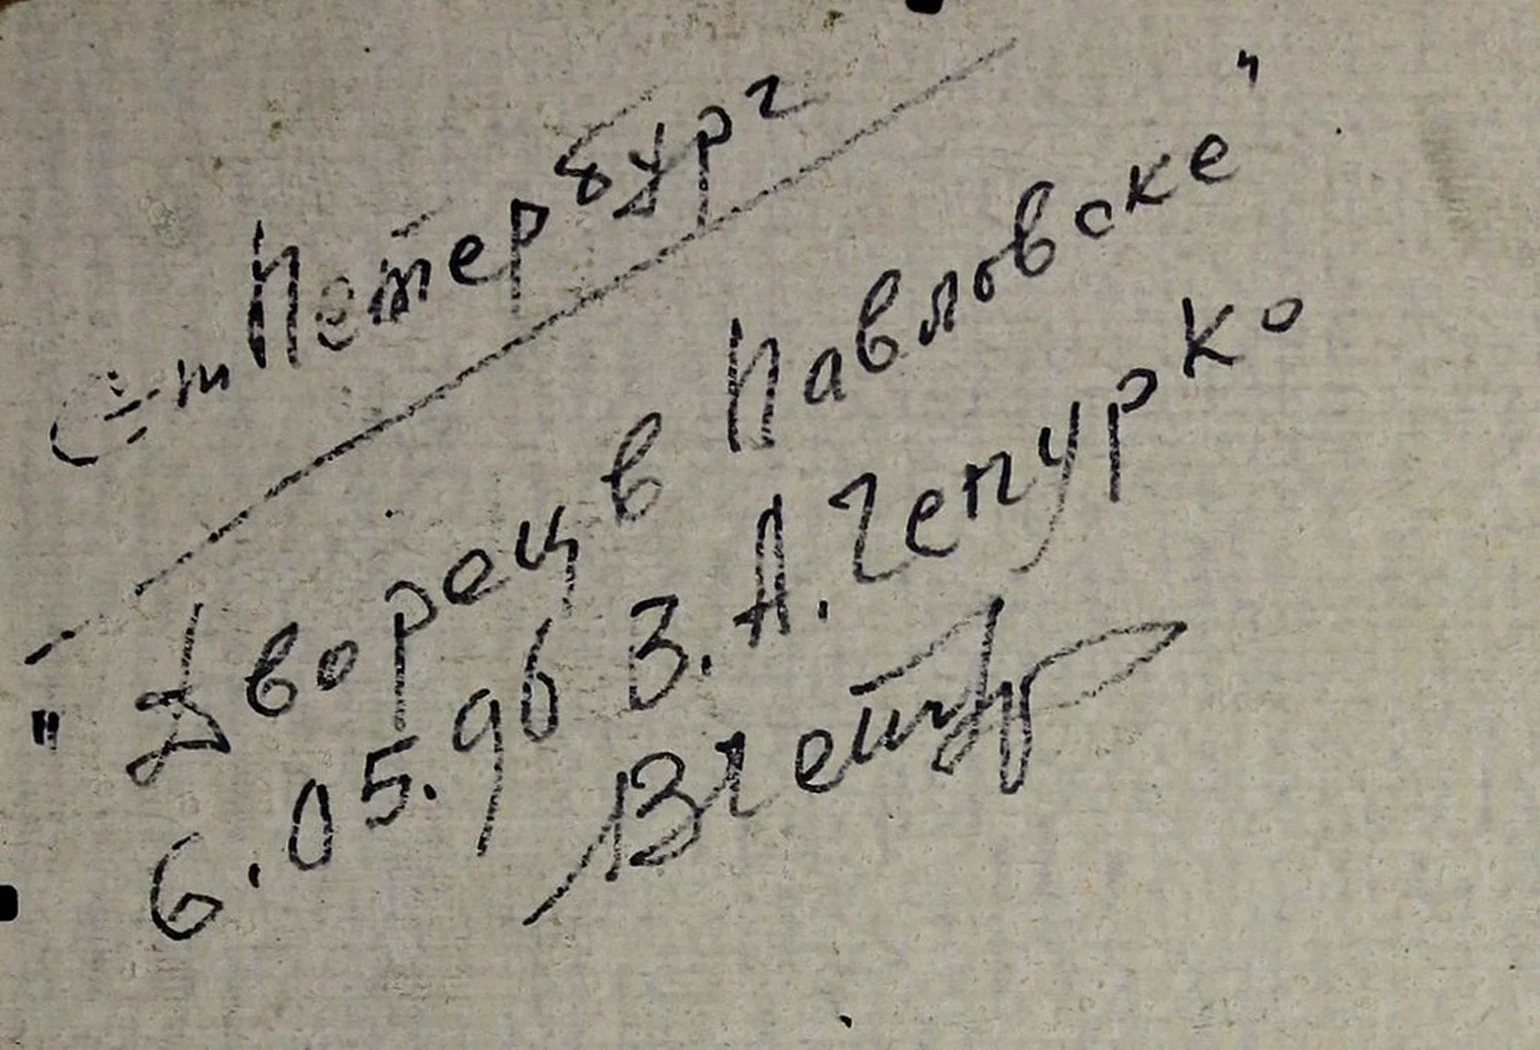 С-т Петербург
"Дворец в Павловске"
6.05.96 В. А. Чепурко
ВЧепур